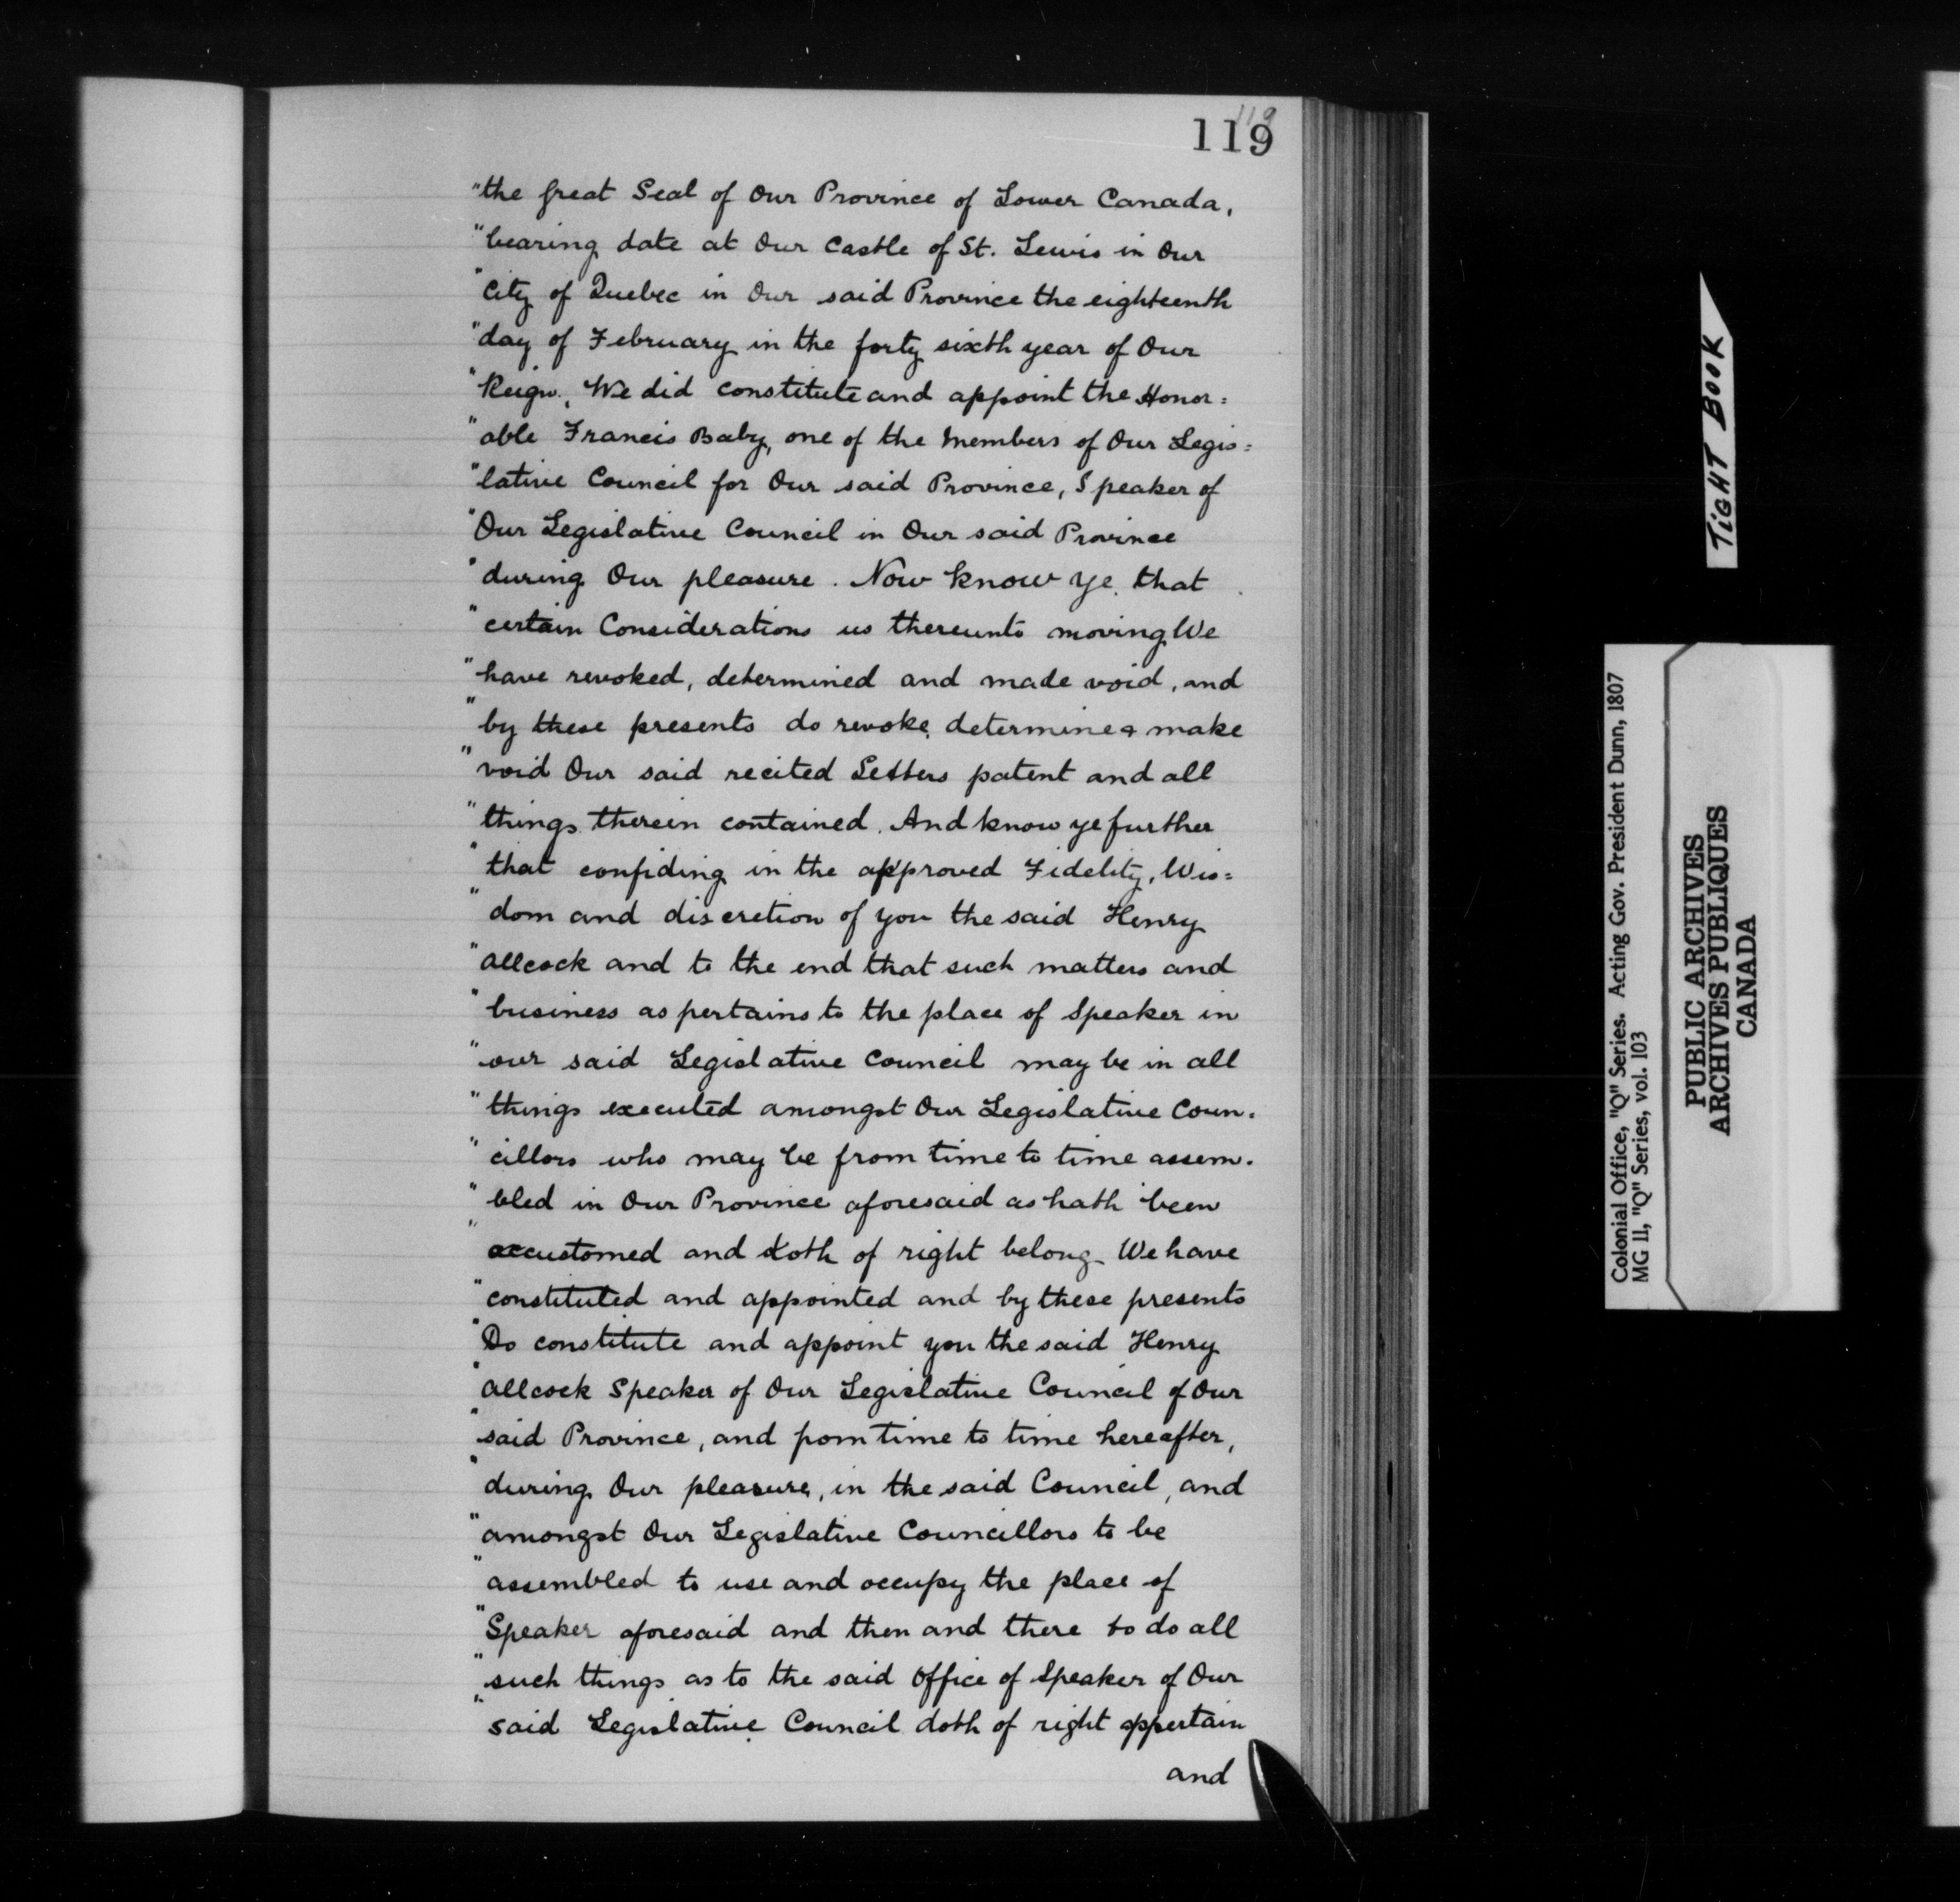 119
119
"the great Seal of Our Province of Lower Canada,
"bearing date at Our Castle of St. Lewis in Our
"City of Quebec in Our said Province the eighteenth
"day of February in the forty sixth year of Our
"Reign, We did constitute and appoint the Honor=
"able Francis Baby, one of the Members of Our Legis=
"lative Council for Our said Province, Speaker of
"Our Legislative Council in Our said Province
"during Our pleasure. Now know ye that
"certain Considerations us thereunto moving We
"have revoked, determined and made void, and
"by these presents do revoke, determine & make
"void Our said recited Letters patent and all
"things therein contained. And know ye further
"that confiding in the approved Fidelity, Wis=
"dom and discretion of you the said Henry
"Allcock and to the end that such matters and
"business as pertains to the place of Speaker in
"our said Legislative Council may be in all
"things executed amongst Our Legislative Coun-
"cillors who may be from time to time assem-
"bled in Our Province aforesaid as hath been
"accustomed and doth of right belong We have
"constituted and appointed and by these presents
"Do constitute and appoint you the said Henry
"Allcock Speaker of Our Legislative Council of Our
"said Province, and from time to time hereafter,
"during Our pleasure, in the said Council, and
"amongst Our Legislative Councillors to be
"assembled to use and occupy the place of
"Speaker aforesaid and then and there to do all
"such things as to the said Office of Speaker of Our
"said Legislative Council doth of right appertain
and
TIGHT BOOK
Colonial Office, "Q" Series. Acting Gov. President Dunn, 1807
MG 11, "Q" Series, vol. 103
PUBLIC ARCHIVES
ARCHIVES PUBLIQUES
CANADA